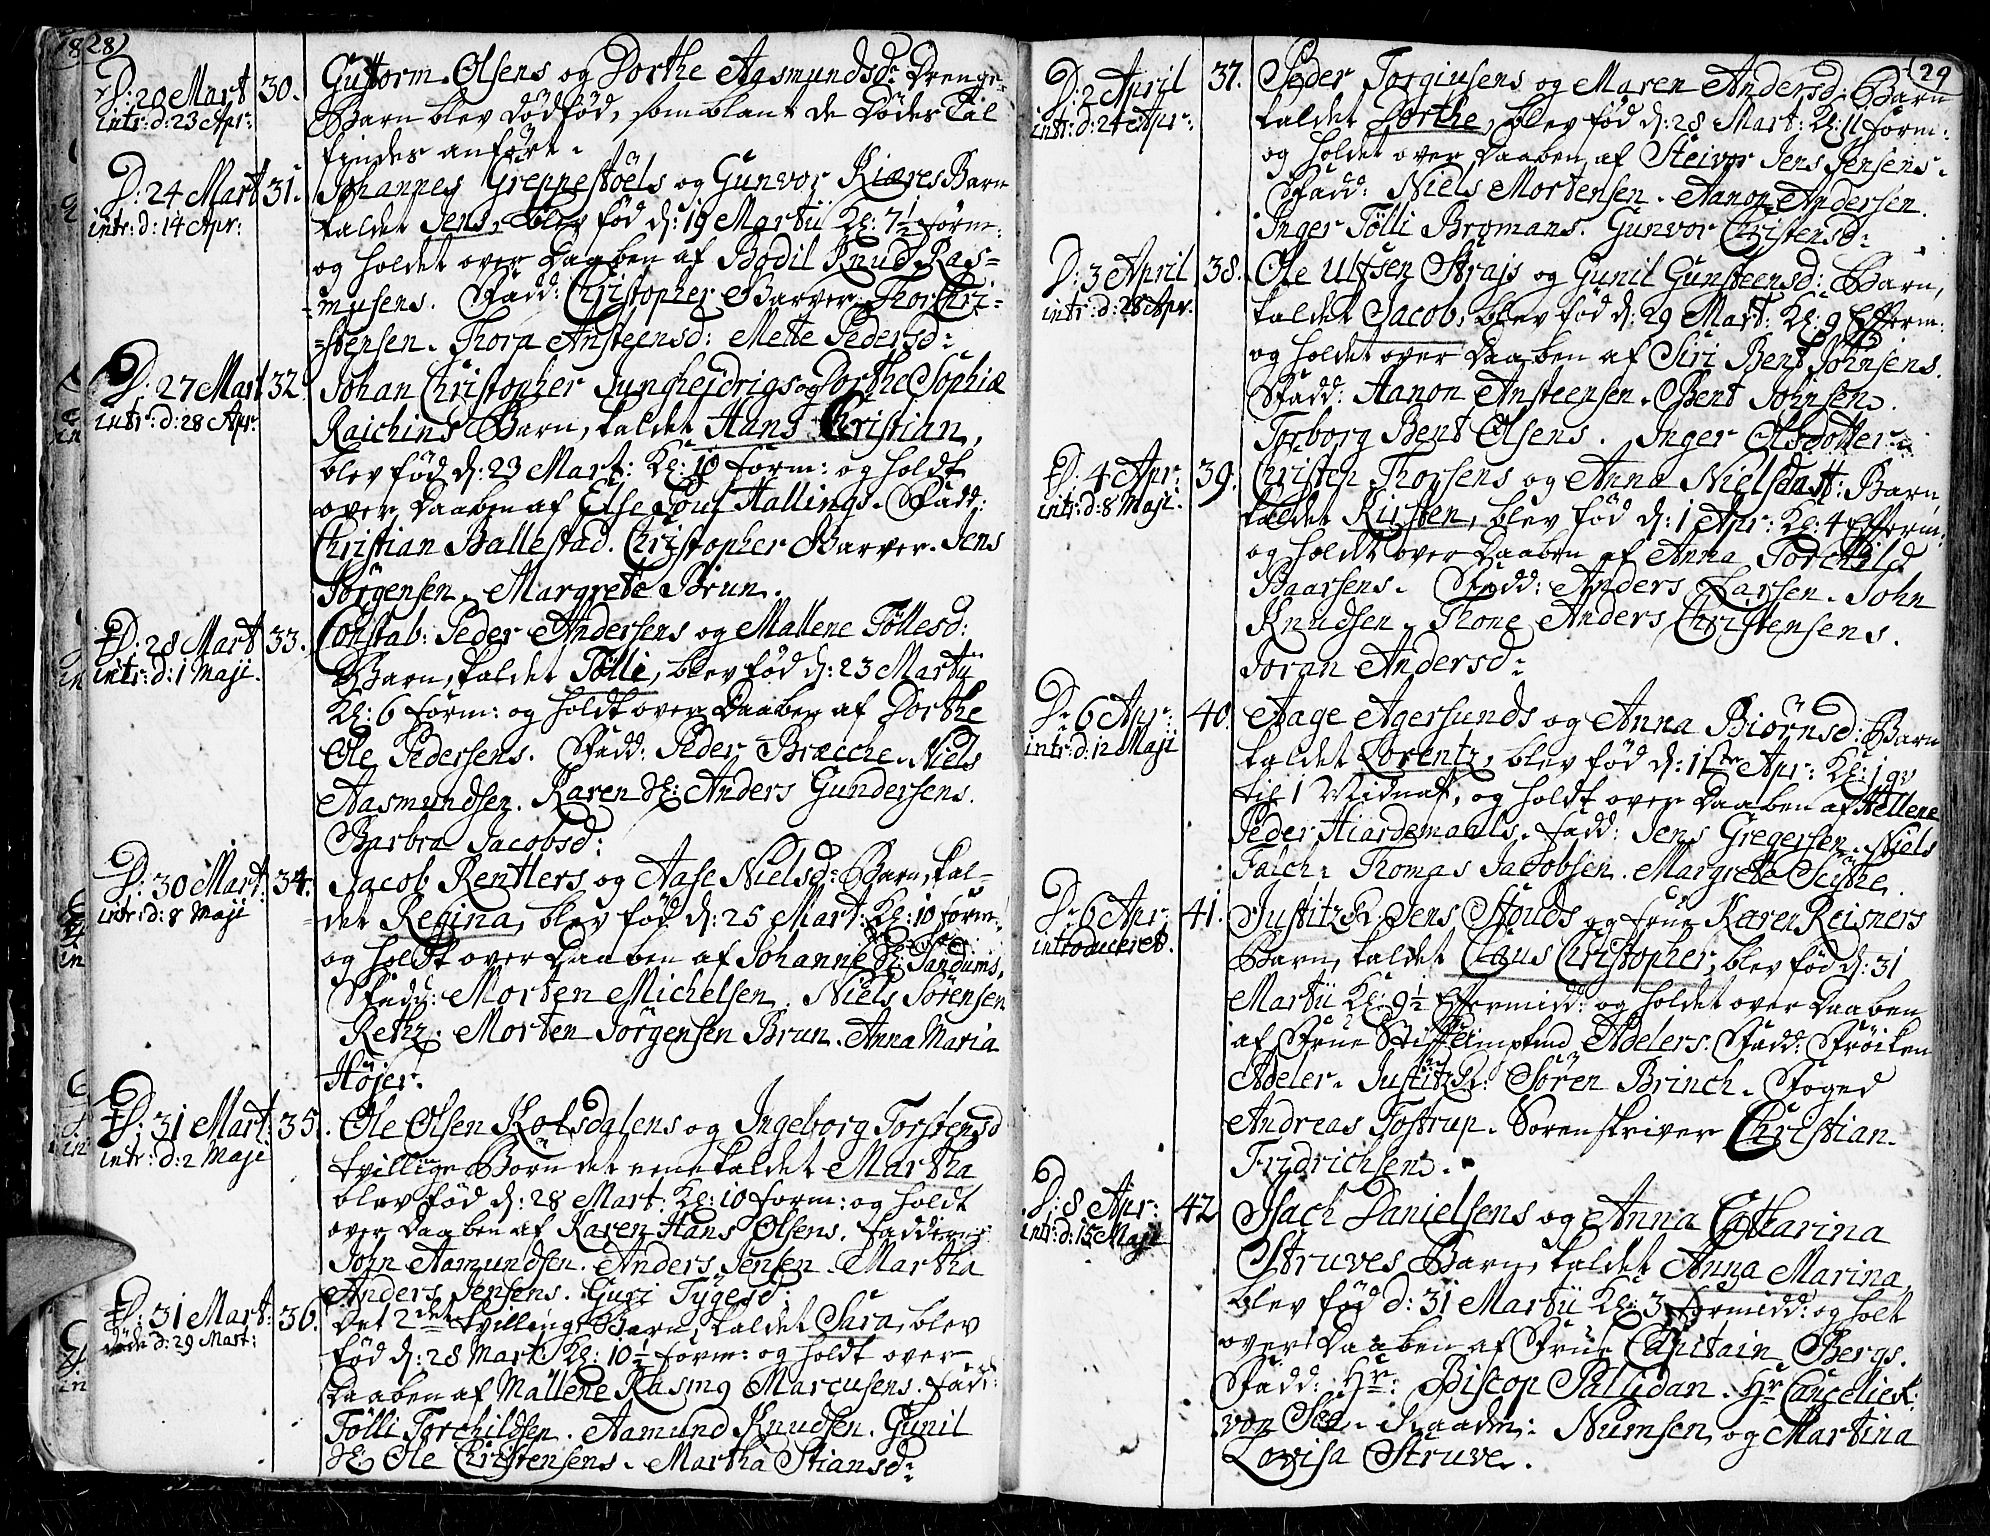 28)
D: 20 Mart
intr: d: 23 Apr:
30.
Guttorm Olsens og Dorthe Aasmundsd: Drenge-
Barn blev dödföd, som blant de Dödes Tal
findes anfört.
D: 24 Mart
intr: d: 14 Apr:
31.
Johannes Greppestöels og Gunvor Kiæres Barn
kaldet Jens, blev föd d: 19 Martii Kl: 7½ form:
og holdet over Daaben af Bodil Knud Ras=
=musens. Fadd: Christopher Garver. Thor Chri=
=stensen. Thora Ansteensd: Mette Pedersd:
D: 27 Mart
intr: d: 28 Apr:
32.
Johan Christopher Junghejdrigs og Dorthe Sophiæ
Raichins Barn, kaldet Hans Christian,
blev föd d: 23 Mart: Kl: 10 form: og holdt
over Daaben af Else Poul Hallings. Fadd:
Christian Ballestad. Christopher Garver. Jens
Jörgensen. Margrete Brun.
D: 28 Mart
intr: d: 1 Maji.
33.
Constab: Peder Andersens og Mallene Töllesd:
Barn, kaldet Tölli, blev föd d: 23 Martii
Kl: 6 form: og holdt over Daaben af Dorthe
Ole Pedersens. Fadd: Peder Bræcche. Niels
Aasmundsen. Karen Sl: Anders Gundersens.
Barbra Jacobsd:
D: 30 Mart:
intr: d: 8 Maji
34.
Jacob Rentlers og Aase Nielsd: Barn, kal-
det Regina, blev föd d: 25 Mart: Kl: 10 form:
og holdt over Daaben af Johanne Sl: Sandums,
Fadd: Morten Michelsen. Niels Sörensen
Rethz. Morten Jörgensen Brun. Anna Maria
Höjer.
D: 31 Mart:
intr: d: 2 Maji
35.
Ole Olsen Kolsdalens og Ingeborg Torstensd
tvillinge Börn det eene kaldet Martha
blev föd d: 28 Mart: Kl: 10 form: og holdt
over Daaben af Karen Hans Olsens. Faddere:
Jörn Aamundsen. Anders Jensen. Martha
Anders Jensens. Guri Tygesd:
D: 31 Mart:
döde d: 29 Mart:
36.
Det 2det tvillings Barn, kaldet Sara, blev
föd d: 28 Mart: Kl: 10½ form: og holdt over
Daaben af Mallene Rasmg Marcusens. Fadd:
Tölli Torchildsen. Aamund Knudsen. Gunil
Sl: Ole Christensens. Martha Stiansd:
(29
D: 2 April
intr: d: 24 Apr:
37.
Peder Torgiusens og Maren Andersd: Barn
kaldet Dorthe, blev föd d: 28 Mart: Kl: 11 form:
og holdet over Daaben af Steivor Jens Jensens.
Fadd: Niels Mortensen. Aanon Andersen.
Inger Tölli Bromans. Gunvor Christensd:
D: 3 April
intr: d: 28 Apr.
38.
Ole Ulfsen Strajs og Gunil Gunsteensd: Barn,
kaldet Jacob, blev föd d: 29 Mart: Kl: 9 Efterm:
og holdet over Daaben af Siri Bent Johnsens.
Fadd: Aanon Ansteensen. Bent Johnsen.
Torborg Bent Olsens. Inger Olsdotter.
D: 4 Apr:
intr: d: 8 Maji.
39.
Christen Thorsens og Anna Nielsdatt: Barn,
kaldet Kirsten, blev föd d: 1 Apr: Kl: 4 Efterm:
og holdet over Daaben af Anna Torchild
Baarsens. Fadd: Anders Larsen. John
Knudsen. Thone Anders Christensens.
Joran Andersd:
D: 6 Apr:
intr: d: 12 Maji
40.
Aage Agersunds og Anna Biörnsd: Barn
kaldet Lorentz, blev föd d: 1ste Apr: Kl: 1 qv
til 1 Midnat, og holdt over Daaben af Hellene
Peder Hiardemaals. Fadd: Jens Gregersen. Niels
Falch. Thomas Jacobsen. Margrete Scithe.
D: 6 Apr:
introduceret.
41.
Justitz R. Jens Stouds og frue Karen Reisners
Barn, kaldet Claus Christopher, blev föd d: 31
Martii Kl: 9½ Eftermidd: og holdet over Daaben
af Frue Stiftelimptmd Adelers. Fadd: Fröiken
Adeler. Justitz R: Sören Brinch. Foged
Andreas Tostrup. Sorenskriver Christian
Fridrichsen.
D: 8 Apr:
intr: d: 15 Maji
42
Isach Danielsens og Anna Catharina
Struves Barn, kaldet Anna Marina,
blev föd d: 31 Martii Kl: 3 formidd: og holt
over Daaben af Frue Capitain Bergs.
Fadd: Hr: Biscop Paludan. Hr Canceliest:
von See. Raadm: Numsen, og Martina
Lovisa Struve.